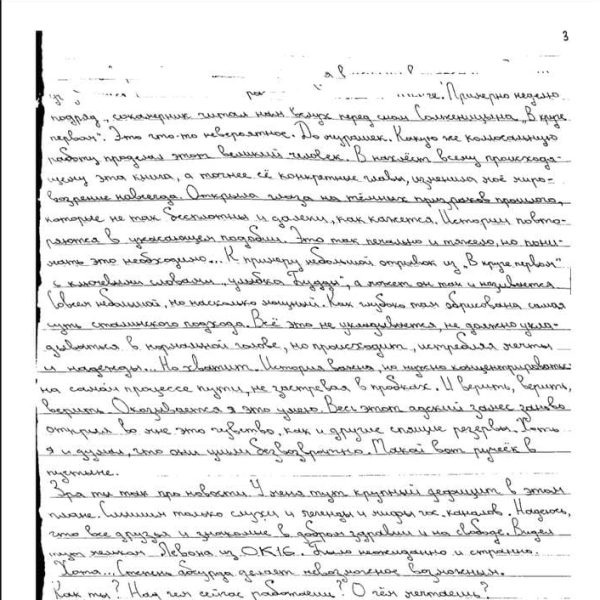 3
я в в
че. Примерно неделю
подряд, сокамерник читал нам вслух перед сном Солженицына „В круге
первом". Это что-то невероятное. До мурашек. Какую же колоссальную
работу проделал этот великий человек. В нахлёст всему происходя-
щему эта книга, а точнее её конкретные главы, изменила моё миро-
воззрение навсегда. Открыла глаза на тёмных призраков прошлого,
которые не так бесплотны и далеки, как кажется. Истории повто-
ряются в ужасающем подобии. Это так печально и тяжело, но пони-
мать это необходимо... К примеру небольшой отрывок из „В круге первом"
с ключевыми словами „улыбка Будды", а может он так и называется
Совсем небольшой, но насколько мощный. Как глубоко там обрисована самая
суть сталинского подхода. Всё это не укладывается, не должно укла-
дываться в нормальной голове, но происходит, истребляя мечты
и надежды... Но хватит. История важна, но нужно концентрироваться
на самом процессе пути, не застревая в пробках. И верить, верить,
верить. Оказывается я это умею. Весь этот адский занес заново
открыл во мне это чувство, как и другие спящие резервы. Хоть
я и думал, что они ушли безвозвратно. Такой вот ручеёк в
пустыне.
Зря ты так про новости. У меня тут крупный дефицит в этом
плане. Слышим только слухи и легенды и мифы гос. каналов. Надеюсь,
что все друзья и знакомые в добром здравии и на свободе. Видел
тут мельком Левона из OK16. Было неожиданно и странно.
Хотя... Степень абсурда делает невозможное возможным.
Как ты? Над чем сейчас работаешь? О чём мечтаешь?